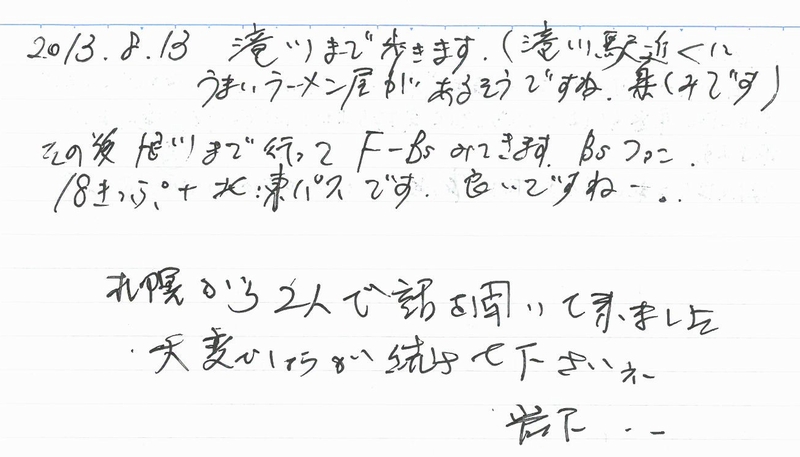 2013.8.13 滝川まで歩きます.(滝川駅近くに
うまいラーメン屋があるそうですね.楽しみです)
その後 旭川まで行って F-Bs みてきます. Bsファン.
18きっぷ+北・東パスです. 良いですねー..
札幌から2人で話を聞いて来ました
大変でしょうが続けて下さいネー
岩下